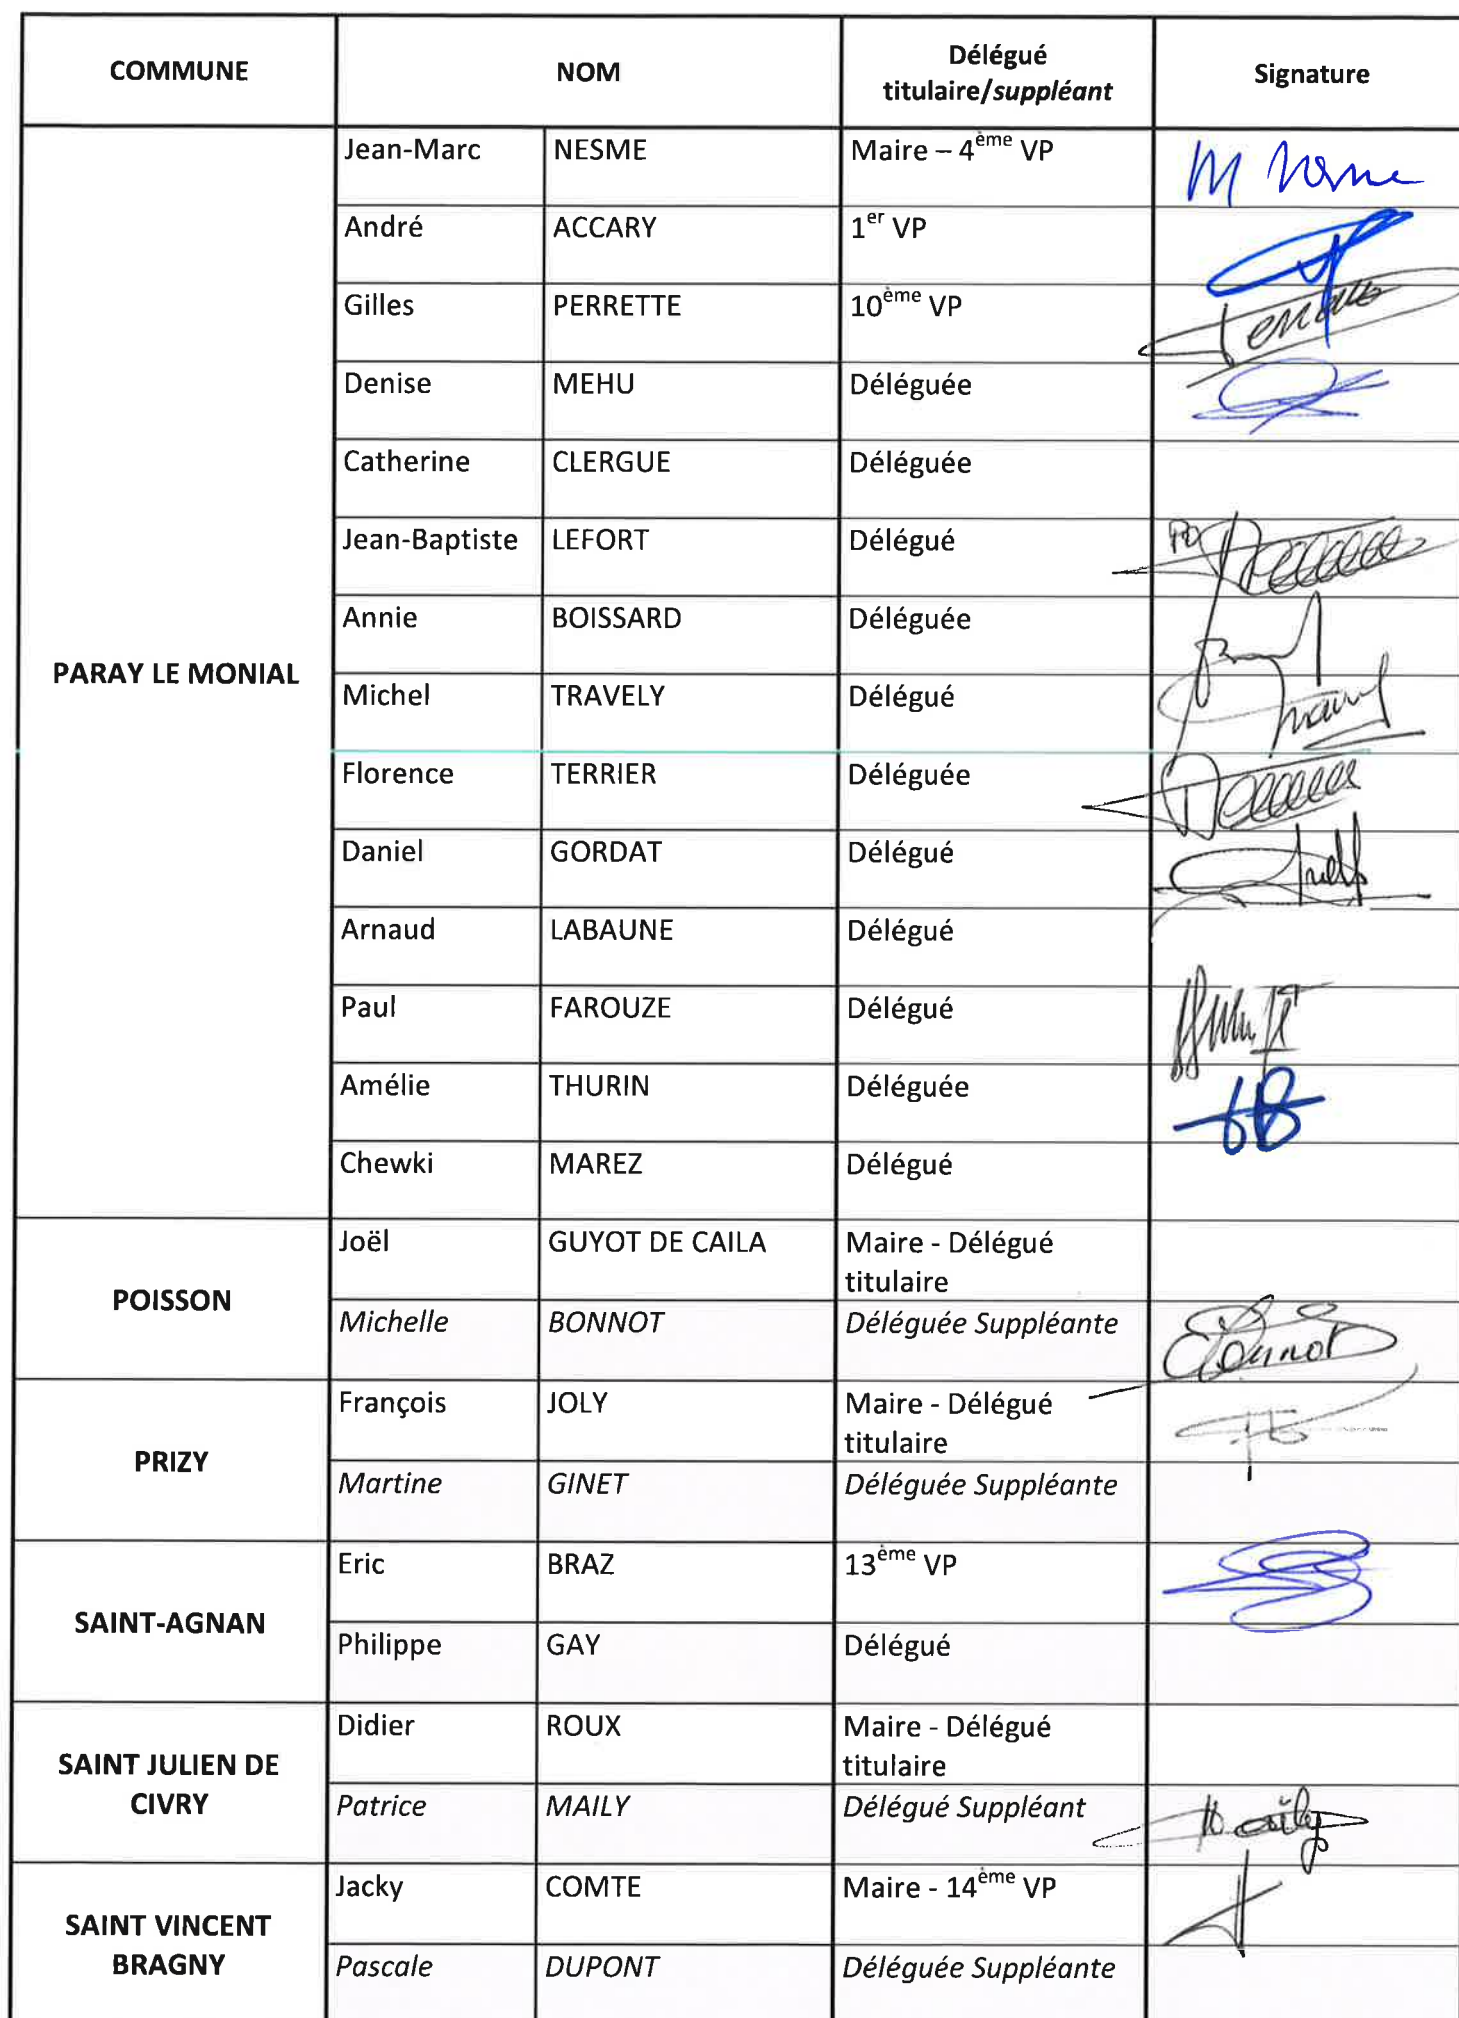 COMMUNE NOM Délégué titulaire/suppléant Signature
PARAY LE MONIAL
Jean-Marc NESME Maire – 4ème VP M Nesme
André ACCARY 1er VP
Gilles PERRETTE 10ème VP
Denise MEHU Déléguée
Catherine CLERGUE Déléguée
Jean-Baptiste LEFORT Délégué PO
Annie BOISSARD Déléguée
Michel TRAVELY Délégué
Florence TERRIER Déléguée
Daniel GORDAT Délégué
Arnaud LABAUNE Délégué
Paul FAROUZE Délégué
Amélie THURIN Déléguée
Chewki MAREZ Délégué
POISSON
Joël GUYOT DE CAILA Maire - Délégué titulaire
Michelle BONNOT Déléguée Suppléante Bonnot
PRIZY
François JOLY Maire - Délégué titulaire
Martine GINET Déléguée Suppléante
SAINT-AGNAN
Eric BRAZ 13ème VP
Philippe GAY Délégué
SAINT JULIEN DE CIVRY
Didier ROUX Maire - Délégué titulaire
Patrice MAILY Délégué Suppléant Maily
SAINT VINCENT BRAGNY
Jacky COMTE Maire - 14ème VP
Pascale DUPONT Déléguée Suppléante